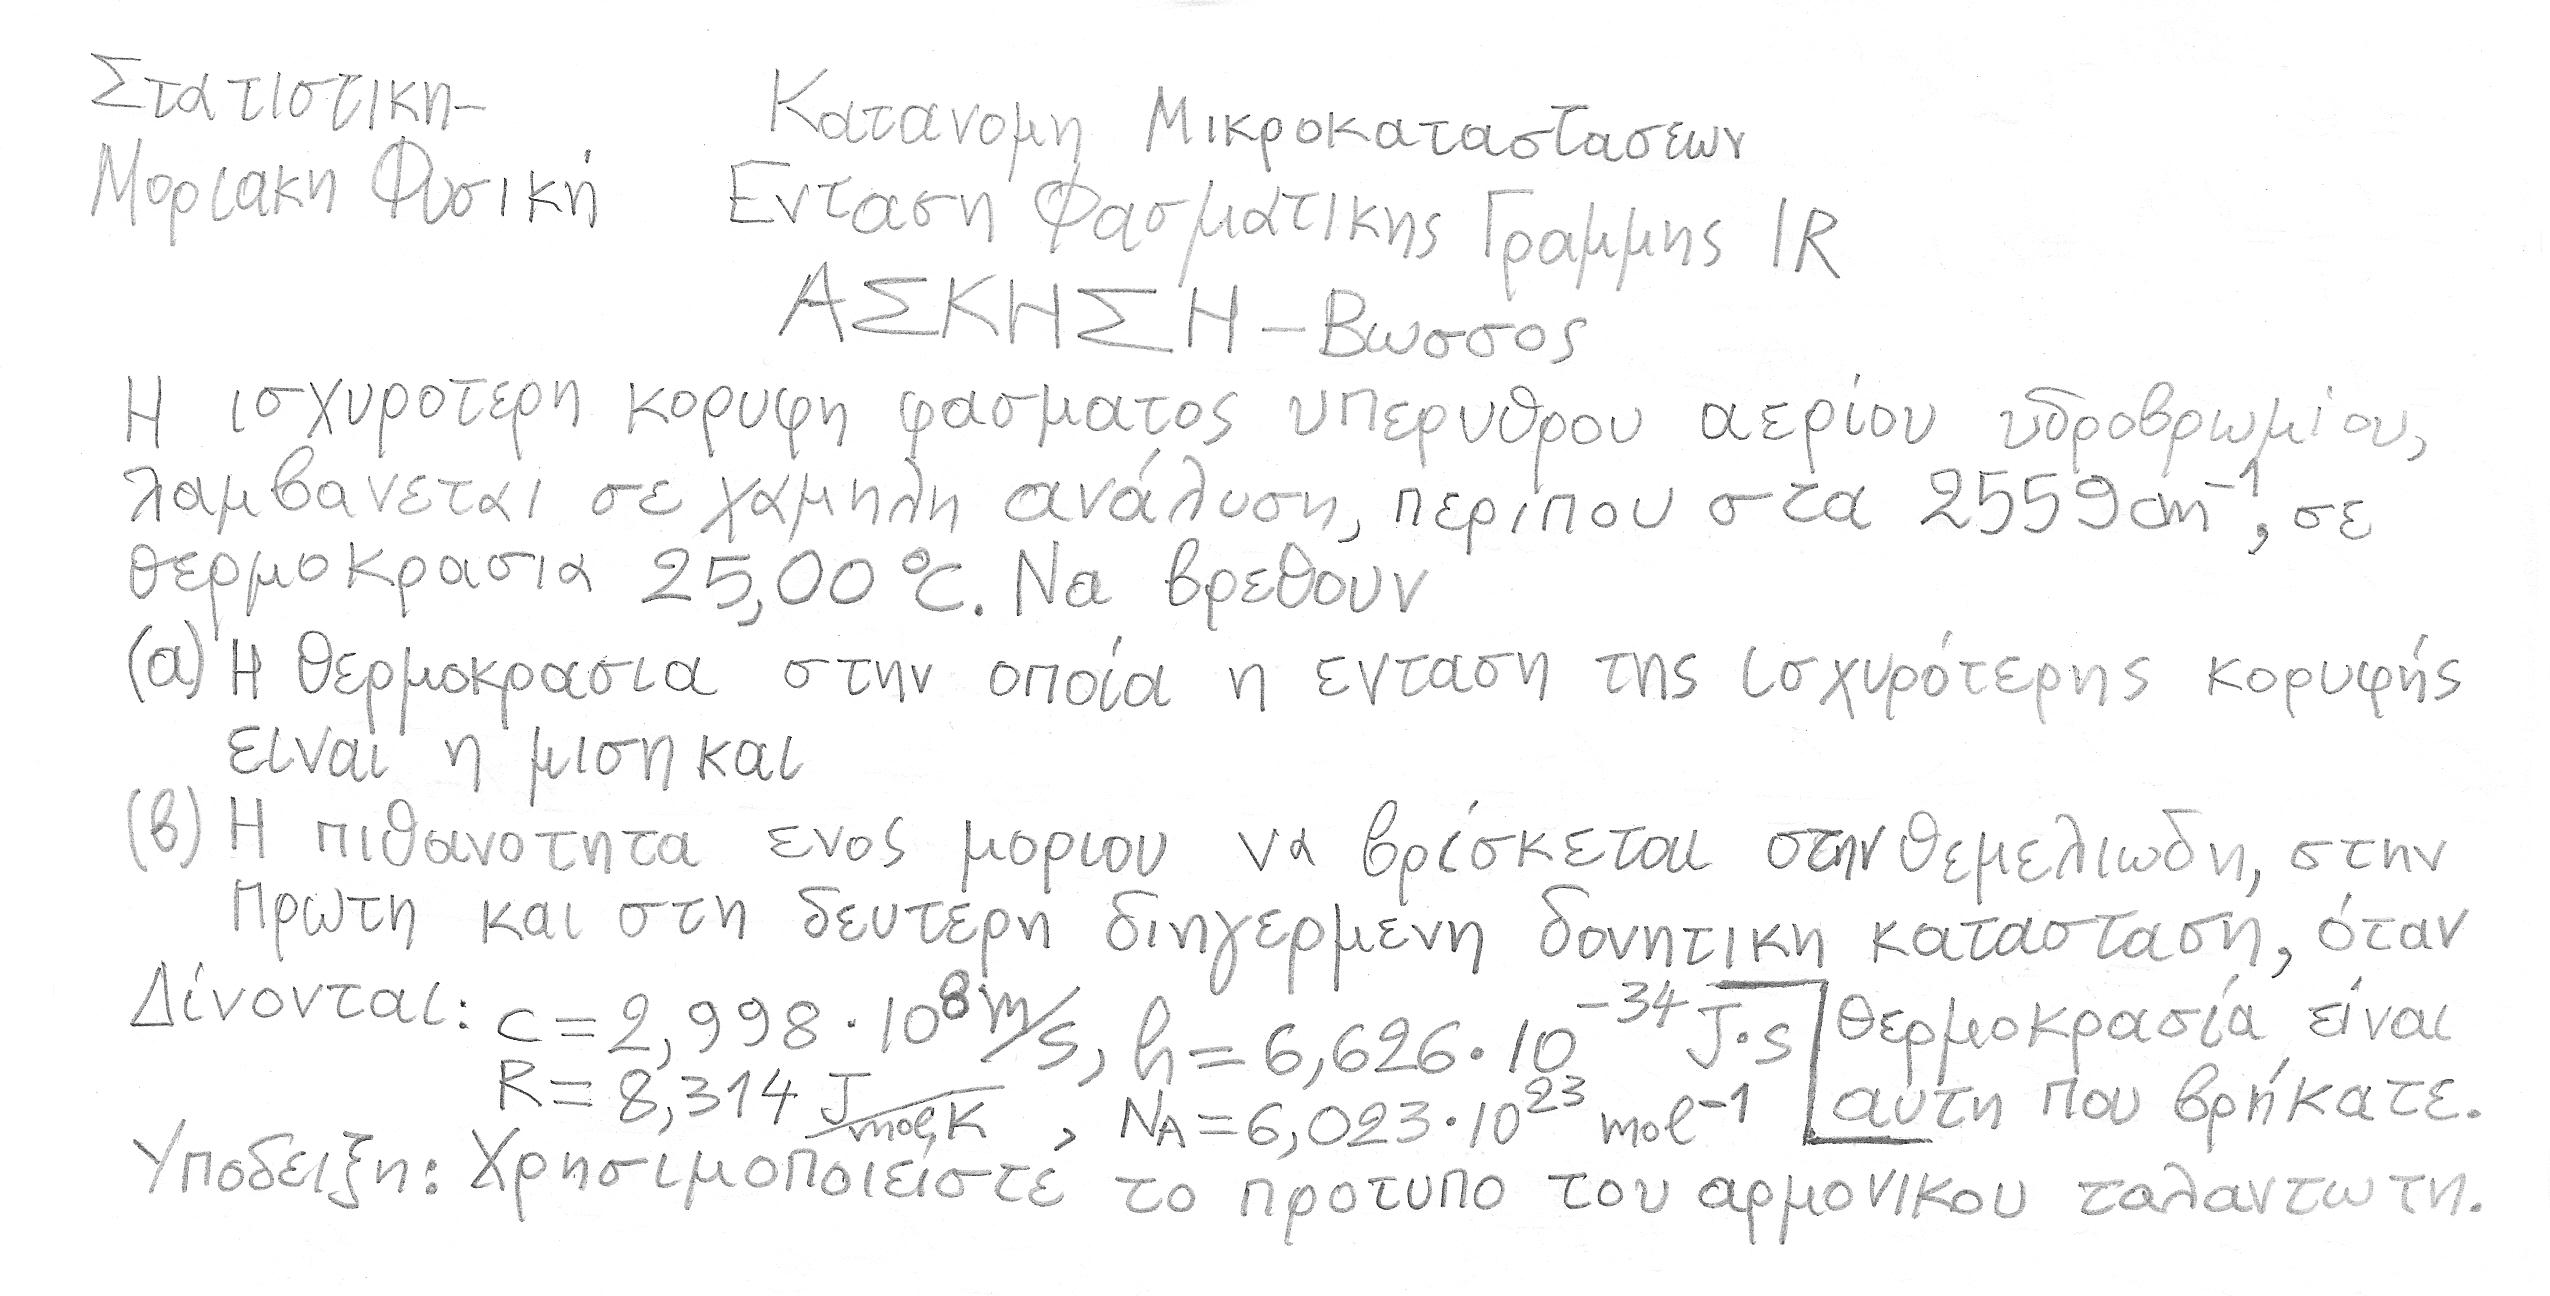 Στατιστικη-
Μοριακη Φυσική
Κατανομη Μικροκαταστασεων
Ενταση Φασματικης Γραμμης IR
ΑΣΚΗΣΗ-Βωσσος
Η ισχυροτερη κορυφη φασματος υπερυθρου αερίου υδροβρωμίου,
λαμβανεται σε χαμηλη ανάλυση, περιπου στα 2559 cm⁻¹, σε
θερμοκρασια 25,00 °C. Να βρεθουν
(α) Η θερμοκρασια στην οποία η ενταση της ισχυρότερης κορυφής
ειναι η μιση και
(β) Η πιθανοτητα ενος μοριου να βρίσκεται στην θεμελιωδη, στην
πρωτη και στη δευτερη διηγερμενη δονητικη κατασταση, όταν
θερμοκρασιά είναι
αυτη που βρήκατε.
Δίνονται: c = 2,998 · 10⁸ m/s, h = 6,626 · 10⁻³⁴ J·s
R = 8,314 J/mol,K , NA = 6,023 · 10²³ mol⁻¹
Υποδειξη: Χρησιμοποιείστε το προτυπο του αρμονικου ταλαντωτη.